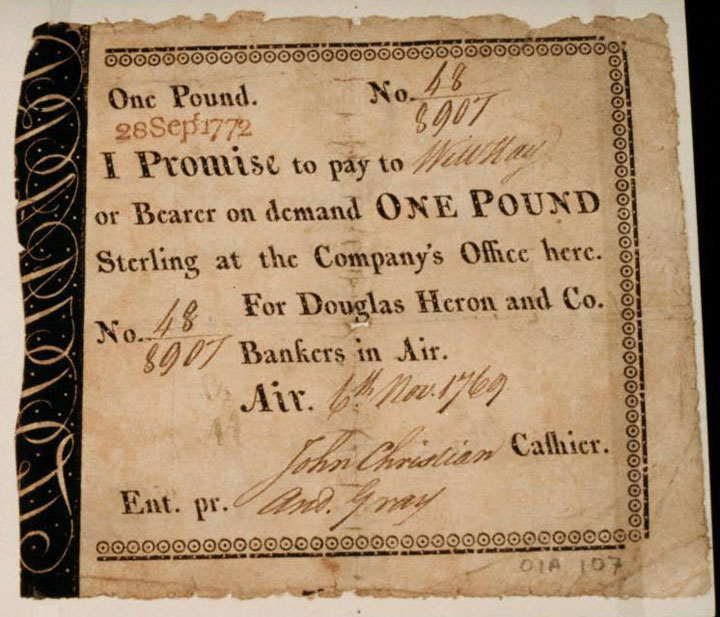 One Pound. No. 48
8907
28 Sepr. 1772
I Promise to pay to Will Hay
or Bearer on demand ONE POUND
Sterling at the Company's Office here.
For Douglas Heron and Co.
No. 48
8907
Bankers in Air.
Air. 6th Nov. 1769
John Christian Caſhier.
Ent. pr. And. Gray
01A 107